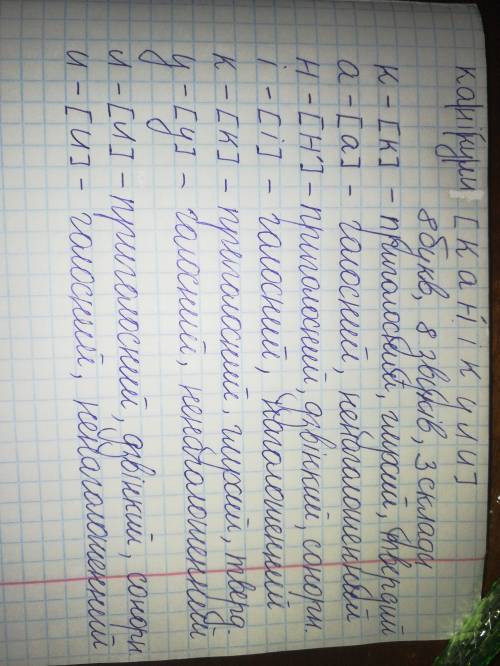 канікули [к а н' і к у л и]
8 букв, 8 звуків, 3 склади
к - [к] - приголосний, глухий, твердий
а - [а] - голосний, ненаголошений
н - [н'] - приголосний, дзвінкий, сонорн.
і - [і] - голосний, наголошений
к - [к] - приголосний, глухий, тверд.
у - [у] - голосний, ненаголошенний
л - [л] - приголосний, дзвінкий, сонорн
и - [и] - голосний, ненаголошенний